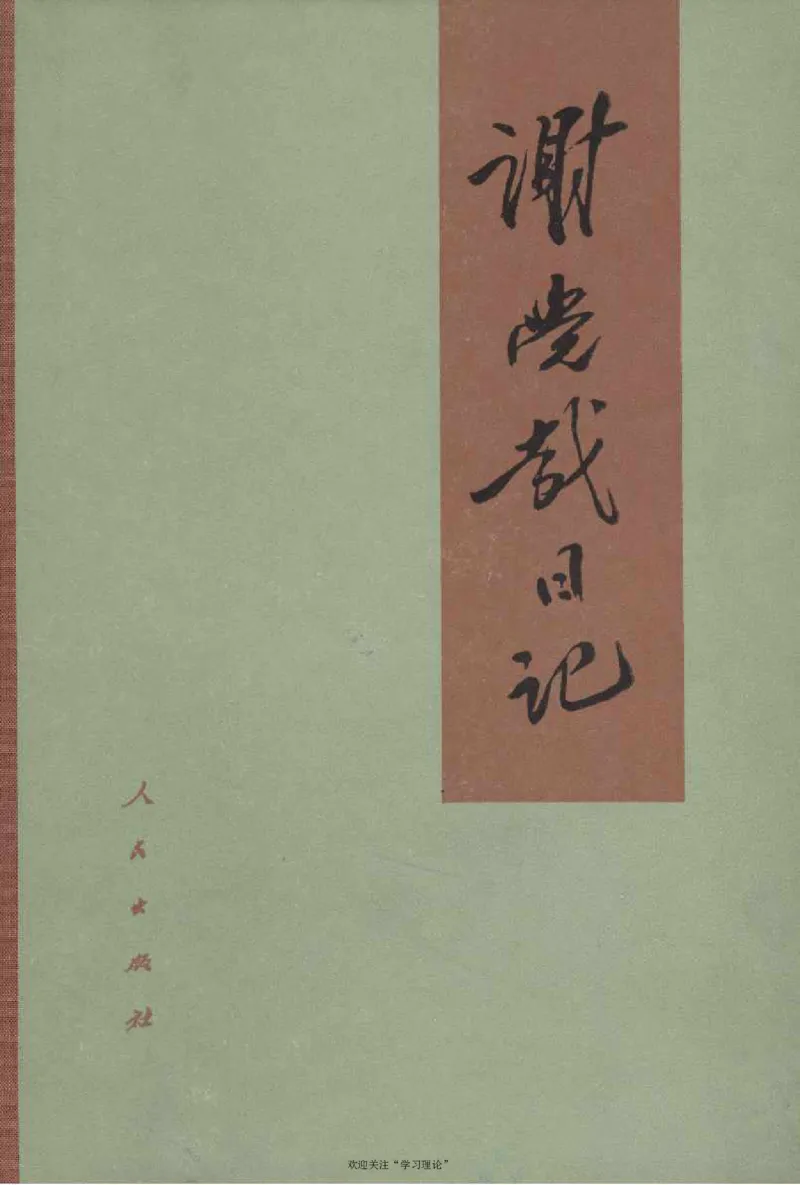 谢觉哉日记
人民出版社
欢迎关注“学习理论”